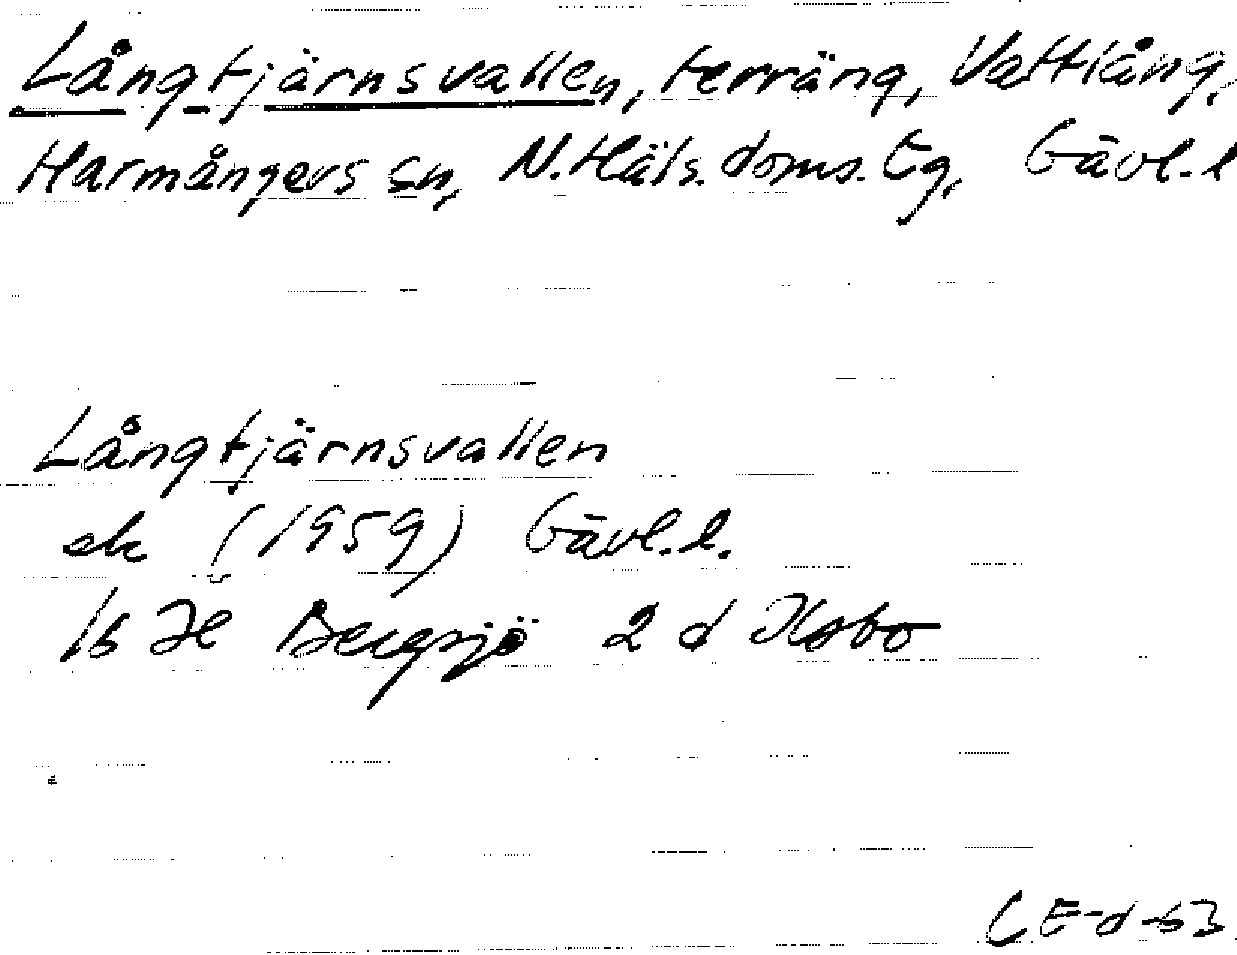 Långtjärnsvallen, terräng, Vattlång,
Harmångers sn, N. Häls. doms. tg, Gävl. l
Långtjärnsvallen
ek (1959) Gävl. l.
16 H Bergsjö 2 d Ilsbo